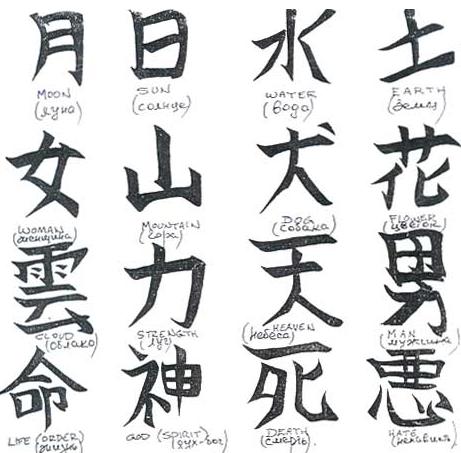 月 日 水 土
MOON SUN WATER EARTH
(луна) (солнце) (вода) (земля)
女 山 犬 花
WOMAN MOUNTAIN DOG FLOWER
(женщина) (гора) (собака) (цветок)
雲 力 天 男
CLOUD STRENGTH HEAVEN MAN
(облако) (небеса) (мужчина)
命 神 死 悪
LIFE (ORDER) GOD (SPIRIT) DEATH HATE
жизнь дух-бог (смерть). (ненависть)